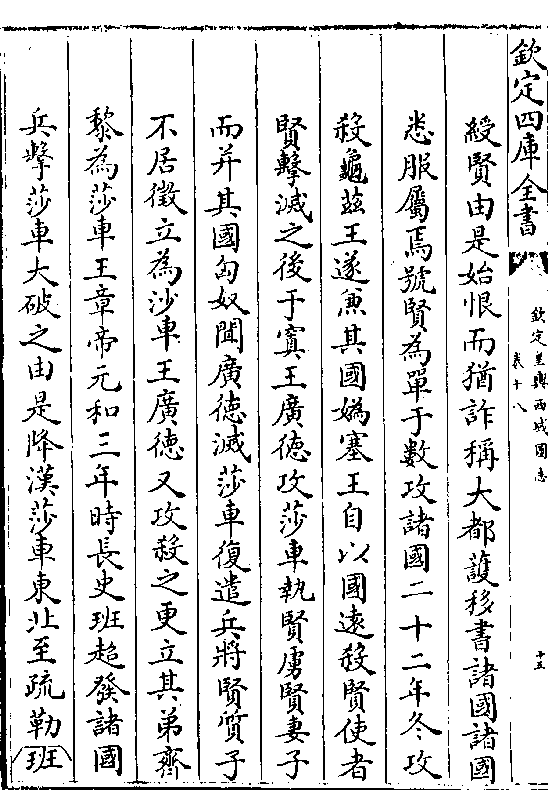 欽定四庫全書
欽定皇輿西域圖志
卷十八
十五
綬賢由是始恨而猶詐稱大都護移書諸國諸國
悉服屬焉號賢為單于數攻諸國二十二年冬攻
殺龜茲王遂兼其國媯塞王自以國遠殺賢使者
賢擊滅之後于寘王廣徳攻莎車執賢虜賢妻子
而并其國匈奴聞廣徳滅莎車復遣兵將賢質子
不居徵立為沙車王廣徳又攻殺之更立其弟齊
黎為莎車王章帝元和三年時長史班超發諸國
兵擊莎車大破之由是降漢莎車東北至疏勒班